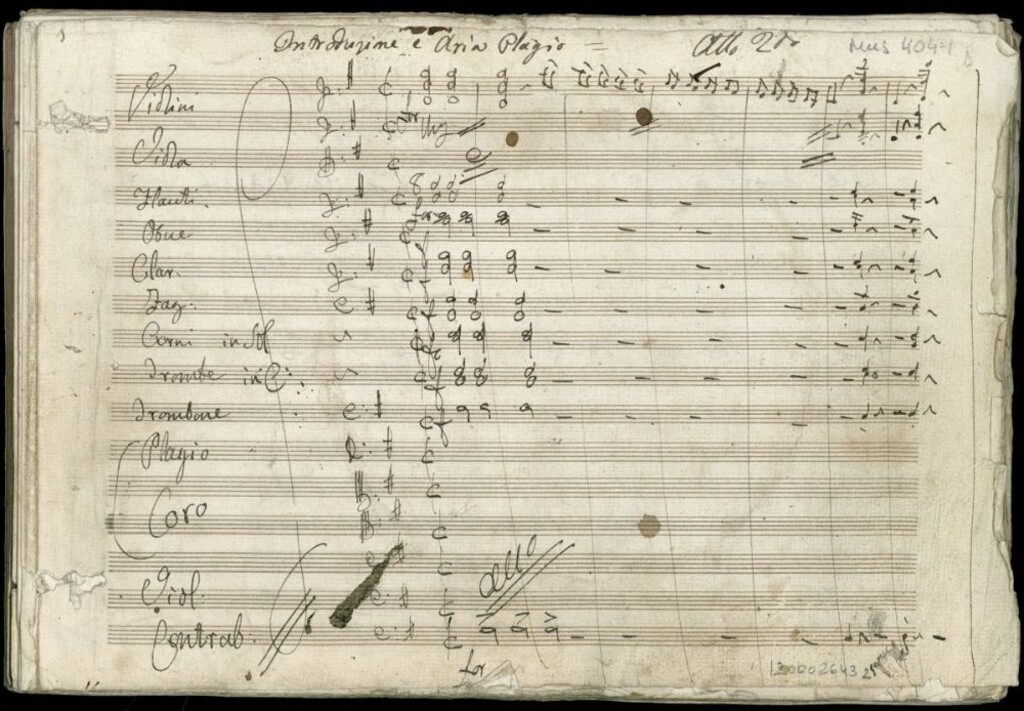 Introduzione e Aria Plagio = Atto 2do Mus 404-1
Violini
for
Viola
Flauti.
for
Oboe
Clar.
Fag.
Corni in Sol
Trombe in C:
Trombone
Plagio
Coro
Viol.
Allo
Contrab.
for
130002643